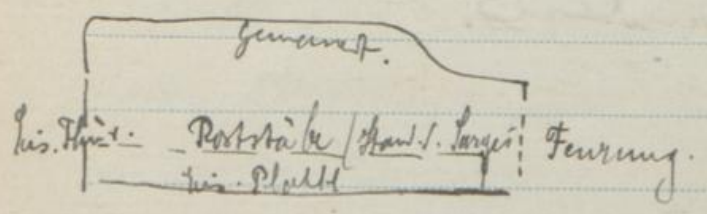 Gemauert.
Eis. Thür. Roststäbe (Stand d. Sarges) Feurung.
eis. Platte